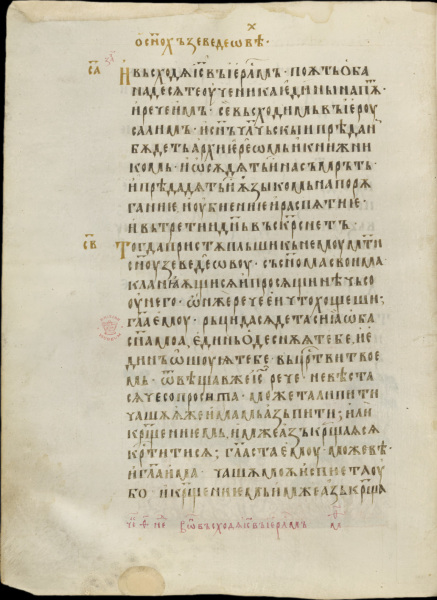 о сн҃ох ъ зеведеѡвѣ
са҃ И въсходѧ і҃с въ іер҃лмъ · поѧтъ оба
на десѧте оученика едины на пѫт҃и
и рече имъ · се въсходимъ въ іероу
салимъ · и сн҃ъ чл҃чьскыи прѣдан
бѫдетъ архиереѡмь и книжни
комь · и ѡсѫдѧтъ и на съмръть ·
и прѣдадѧтъ и ѧзыкомь на порѫ
гание и оубиение и распѧтие ·
и въ третии дн҃ь въскр҃снетъ ·
св҃ Тогда пристѫпи къ немоу м҃ти
сн҃оу зеведеѡвоу · съ сн҃ома своима
кланѣѫщисѧ и просѧщи нѣчьсо
оу него · ѡн же рече еи что хощеши ;
гл҃а емоу · рьци да сѧдета сиа ѡба
сн҃а моа, единь о деснѫѧ тебе, и е
динъ ѡ шоуѧѧ тебе · въ цр҃тви твое
мь · ѿвѣщав же і҃с рече · не вѣста
сѧ чесо просѧща · можета ли пити
чашѫ ѫже имамь азъ пити ; или
кр҃щениемь, имже азъ кр҃щаѧсѧ
кр҃титисѧ ; гл҃аста емоу · можевѣ
и гл҃а има · чашѫ моѫ испиета оу
бо · и кр҃щениемь имже азъ кр҃щаѧ
въсходѧ і҃с въ іер҃лмъ